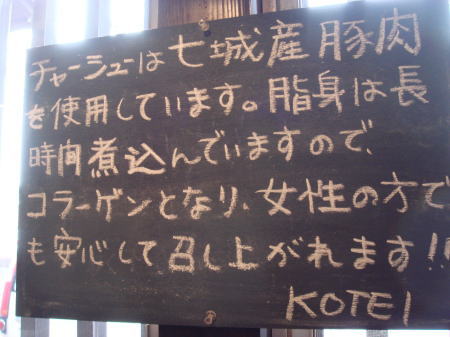 チャーシューは七城産豚肉
を使用しています。脂身は長
時間煮込んでいますので、
コラーゲンとなり、女性の方で
も安心して召し上がれます!!
KOTEI